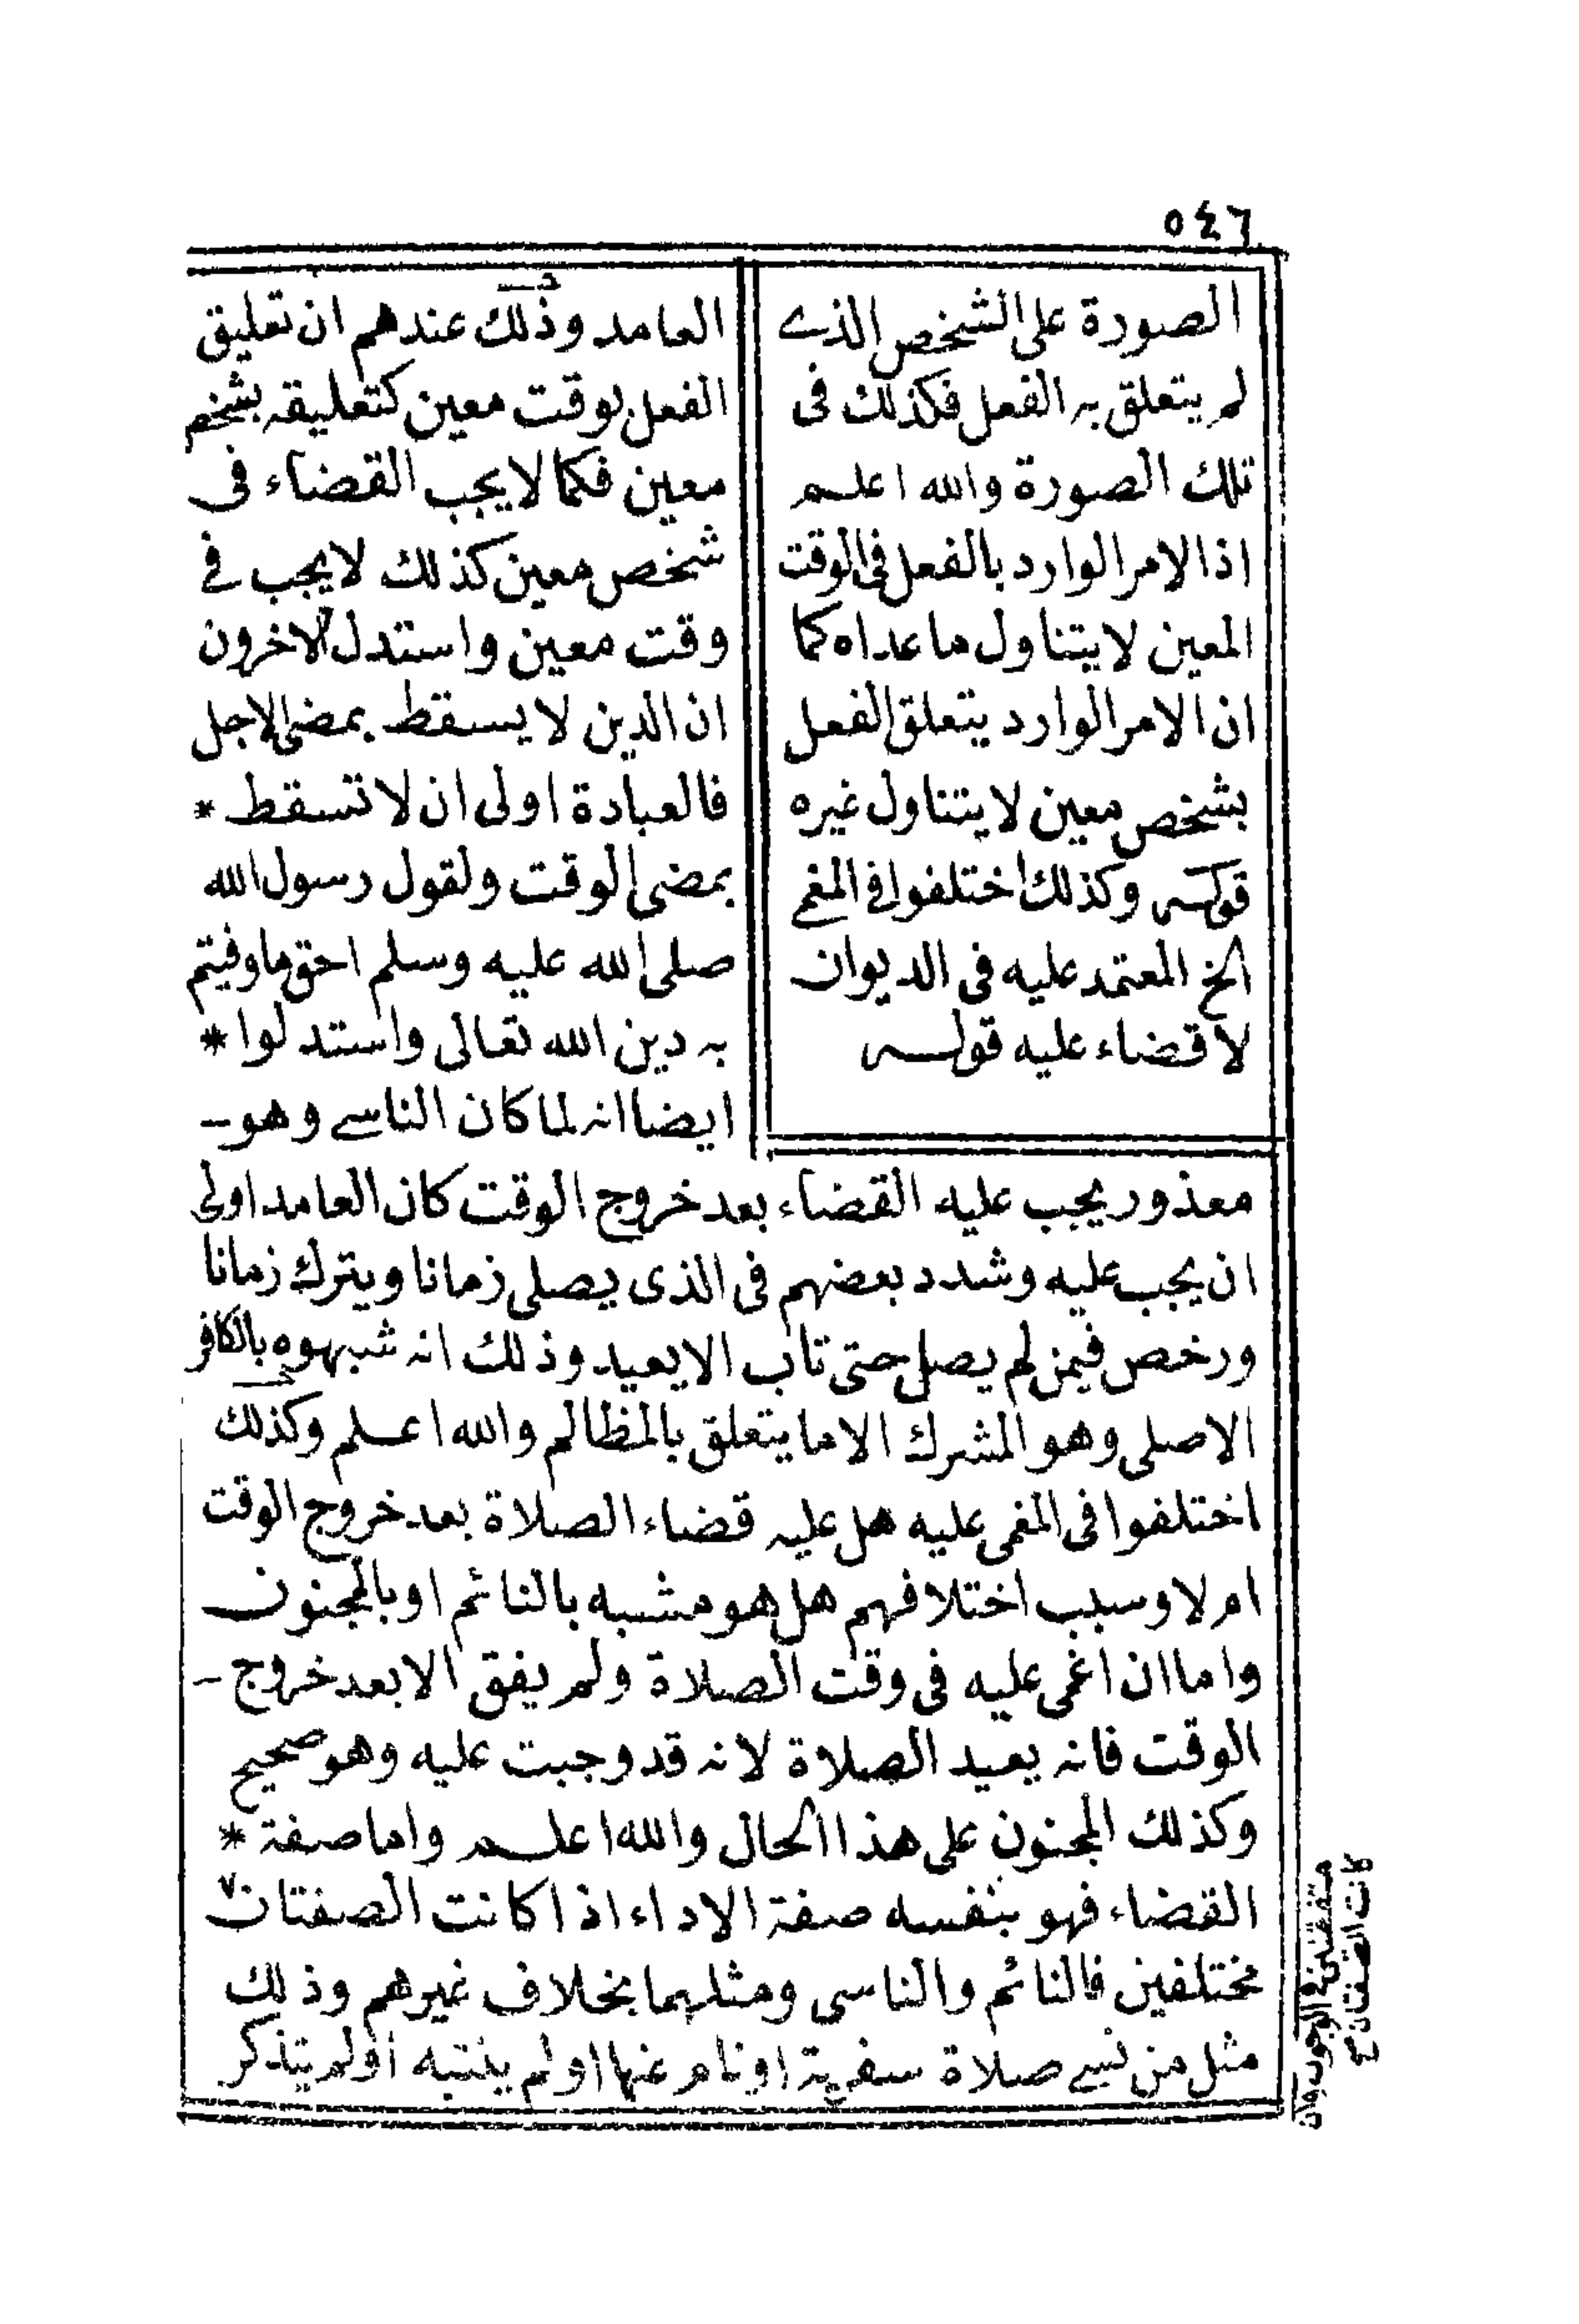 ٥٤٦
الصورة على الشخص الذى
لم يتعلق به الفعل فكذلك فى
تلك الصورة والله اعلم
اذا الامر الوارد بالفعل فى الوقت
المعين لا يتناول ما عداه كما
ان الامر الوارد يتعلق الفعل
بشخص معين لا يتناول غيره
قوله وكذلك اختلفوا فى المغمى
الخ المعتمد عليه فى الديوان
لا قضاء عليه قوله
العامد وذلك عندهم ان تعليق
الفعل بوقت معين كتعليقه بشخص
معين فكما لا يجب القضاء فى
شخص معين كذلك لا يجب فى
وقت معين واستدل الاخرون
ان الدين لا يسقط بمضى الاجل
فالعبادة اولى ان لا تسقط *
بمضى الوقت ولقول رسول الله
صلى الله عليه وسلم احق ما وفيتم
به دين الله تعالى واستدلوا *
ايضا انه لما كان الناسى وهو
معذور يجب عليه القضاء بعد خروج الوقت كان العامد اولى
ان يجب عليه وشدد بعضهم فى الذى يصلى زمانا ويترك زمانا
ورخص فيمن لم يصل حتى تاب الا يعيد وذلك انه شبهوه بالكافر
الاصلى وهو المشرك الا ما يتعلق بالمظالم والله اعلم وكذلك
اختلفوا فى المغمى عليه هل عليه قضاء الصلاة بعد خروج الوقت
ام لا وسبب اختلافهم هل هو مشبه بالنائم او بالمجنون
واما ان اغمى عليه فى وقت الصلاة ولم يفق الا بعد خروج
الوقت فانه يعيد الصلاة لانه قد وجبت عليه وهو صحيح
وكذلك المجنون على هذا الحال والله اعلم واما صفة *
القضاء فهو بنفسه صفة الاداء اذا كانت الصفتان
مختلفين فالنائم والناسى ومثلهما بخلاف غيرهم وذلك
مثل من نسى صلاة سفرية او نام عنها او لم ينتبه او لم يتذكر
متفقتين فى الوجوب وان
كانت الصفتان